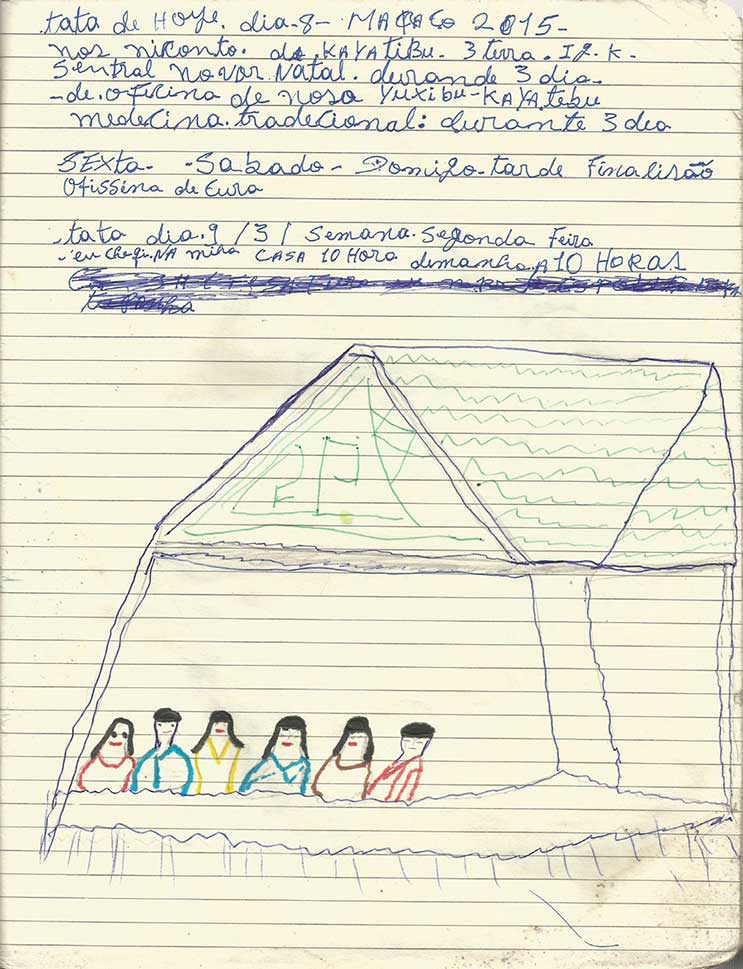 tata de Hoye. dia-8- MAÇAÇO 2015-
nos niconto. do KAYATIBU. 3 terra. I2-K-
Sentral novor Natal. durande 3 dia-
-de. oficina de noso Yuxibu-KAYAtebu
medecina. tradecional: durante 3 dea
SEXta- -Sabado- Domigo-tarde Finalisão
Ofissina de Eura
.tata dia.9 /3/ Semana. Segonda Feira
.eu chegi. NA minha CASA 10 Hora dimanha. A 10 HORAS
20